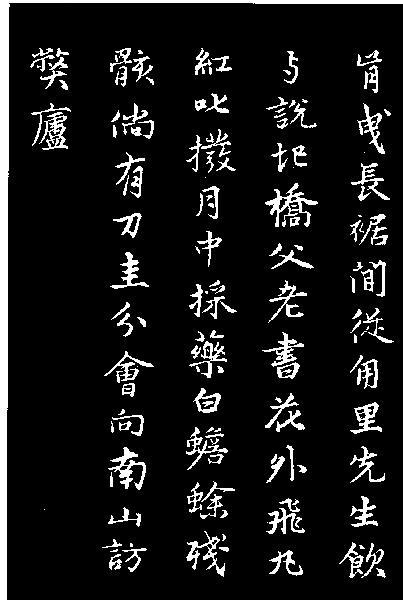 肯曳長裾間從甪里先生飲
与說圯橋父老書花外飛丸
紅叱撥月中採藥白蟾蜍殘
骸倘有刀圭分會向南山訪
獘廬